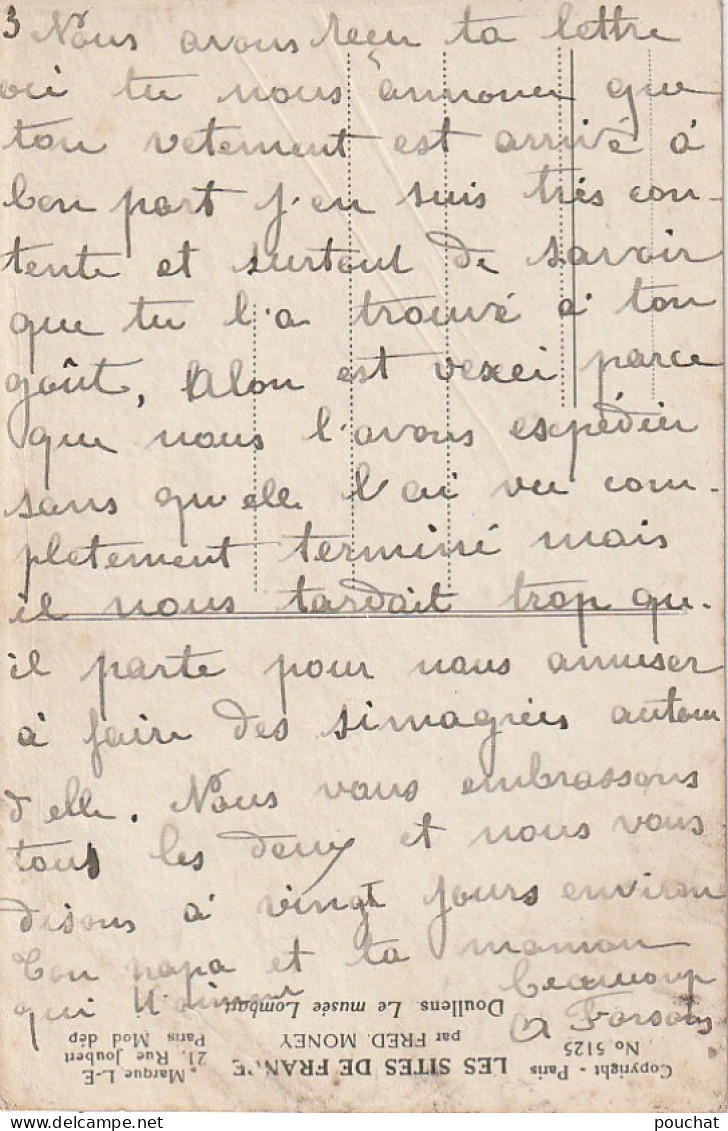 3
Nous avons reçu ta lettre
où tu nous annonce que
ton vetement est arrivé à
bon port j'en suis très con-
tente et surtout de savoir
que tu l'a trouvé à ton
goût, est vexei parce
que nous l'avons expédier
sans qu'elle l'ai vu com-
pletement terminé mais
il nous tardait trop qu-
il parte pour nous amuser
à faire des simagrées autour
d'elle. Nous vous embrassons
tous les deux et nous vous
disons à vingt jours environ
Ton papa et ta maman
qui t'aiment beaucoup
Doullens. Le musée Lombart
par FRED. MONEY
LES SITES DE FRANCE
Copyright - Paris
No 5125
Marque L-E
21, Rue Joubert
Paris Mod dép
pouchat